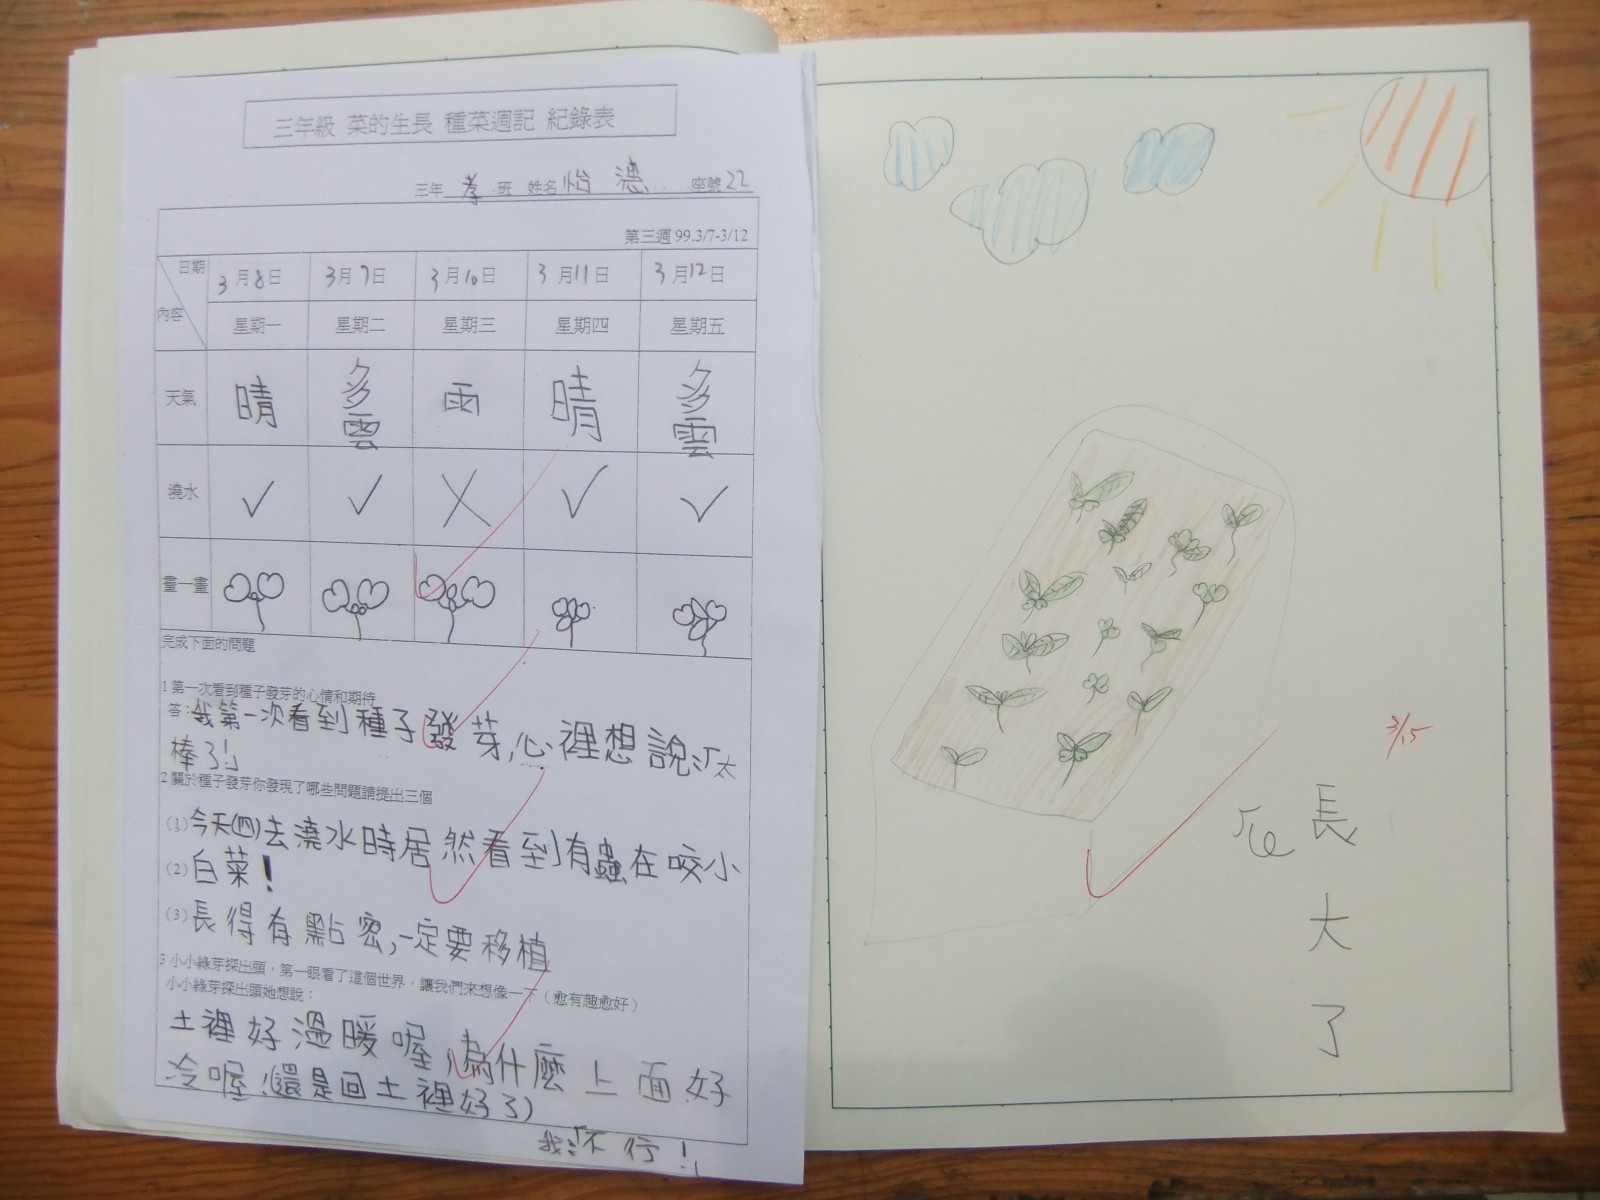 三年級 菜的生長 種菜週記 紀錄表
三年 孝 班 姓名 怡德 座號 22
第三週 99.3/7-3/12
日期 3月8日 3月9日 3月10日 3月11日 3月12日
內容 星期一 星期二 星期三 星期四 星期五
天氣 晴 多雲 雨 晴 多雲
澆水 ✓ ✓ X ✓ ✓
畫一畫
完成下面的問題
1 第一次看到種子發芽的心情和期待
答:我第一次看到種子發芽,心裡想說:「太
棒了!」
2 關於種子發芽你發現了哪些問題請提出三個
(1)今天(四)去澆水時居然看到有蟲在咬小
(2)白菜!
(3)長得有點密,一定要移植
3 小小綠芽探出頭,第一眼看了這個世界,讓我們來想像一下(愈有趣愈好)
小小綠芽探出頭她想說:
土裡好溫暖喔,為什麼上面好
冷喔!(還是回土裡好了)
我:「不行!」
3/15
長大了